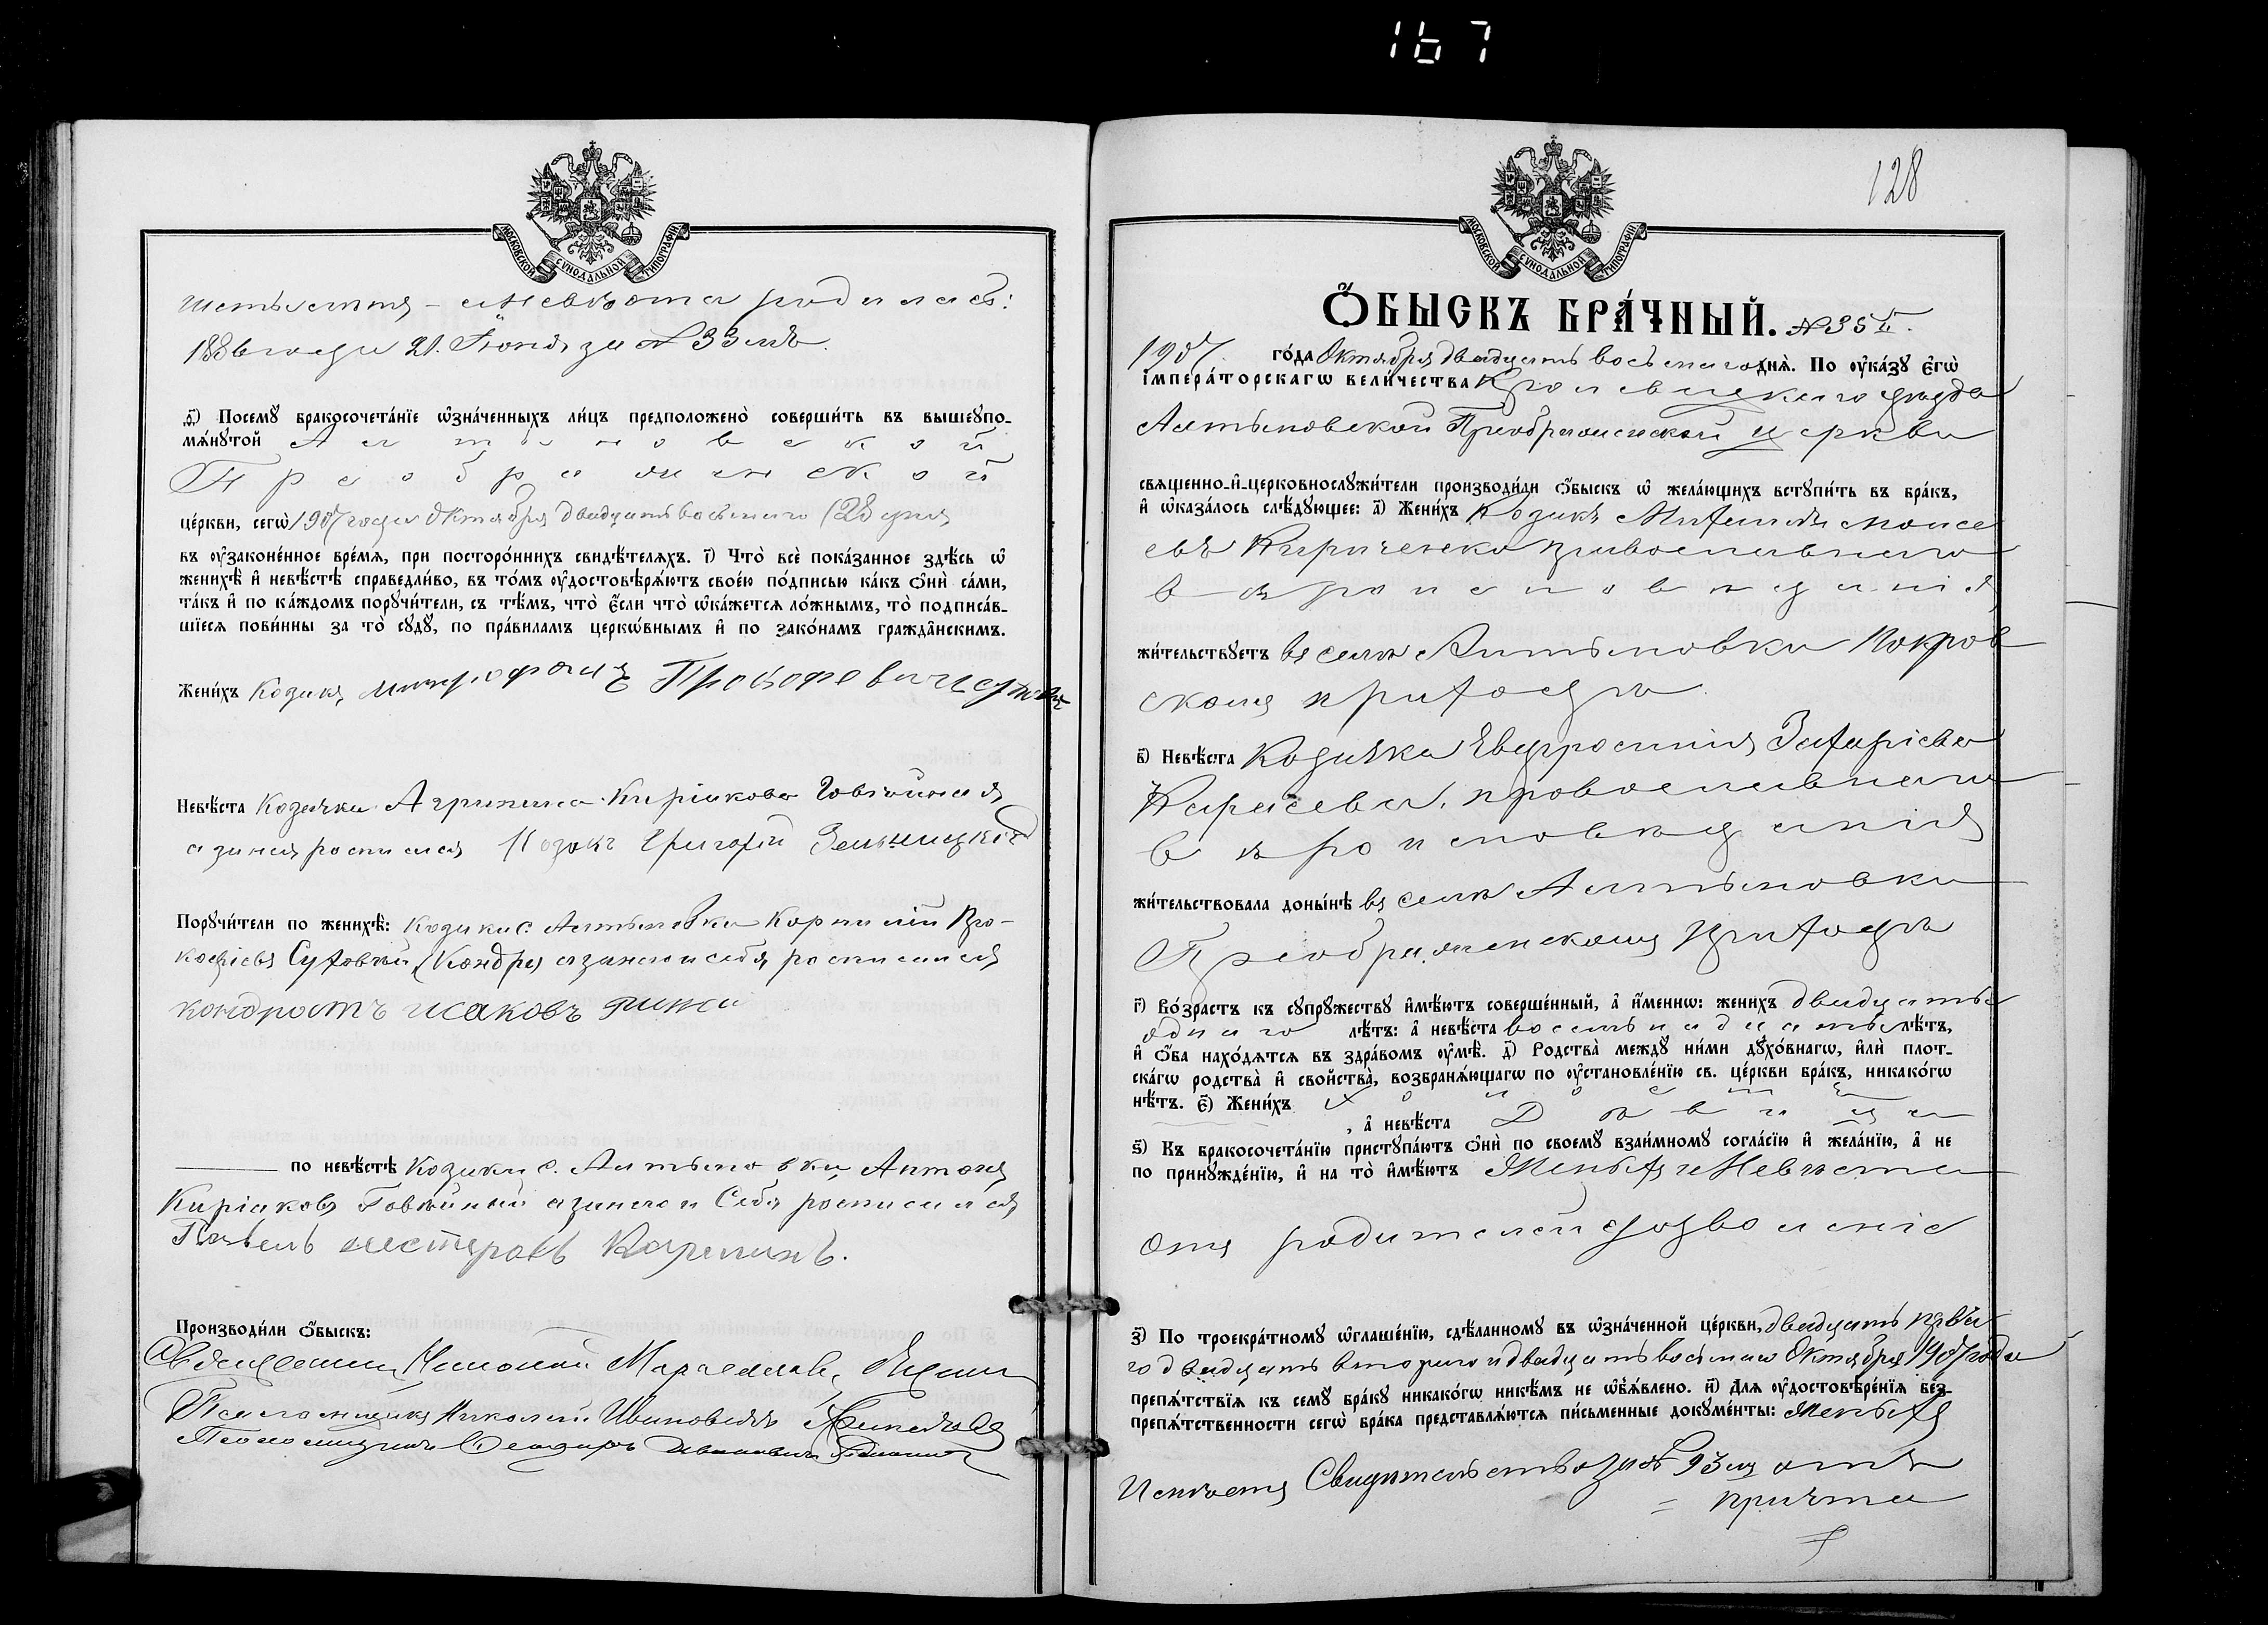 167
МОСКОВСКОЙ СУНОДАЛЬНОЙ ТИПОГРАФІИ
метрическая – а невѣста родилась:
188 года 21 Іюня за № 33 мъ.
д҃) Посемꙋ бракосочета́нїе ѡ҆зна́ченныхъ ли́цъ предположено̀ соверши́ть въ вышеꙋпо-
мѧ́нꙋтой Алтыновской
Преображенской
це́ркви, сегѡ̀ 1907 года Октября двадцать восьмого (28) дня
въ ᲂу҆зако́не́нное вре́мѧ, при посторо́ннихъ свидѣ́телѧхъ. і҃) Что̀ всѐ пока́занное здѣ́сь ѡ҆
женихѣ̀ и҆ невѣ́стѣ справедли́во, въ то́мъ ᲂу҆достовѣрѧ́ютъ свое́ю по́дписью ка́къ ѻ҆нѝ са́ми,
та́къ и҆ по ка́ждомъ порꙋчи́тели, съ тѣ́мъ, что̀ є҆́сли что̀ ѡ҆ка́жетсѧ ло́жнымъ, то̀ подписа́в-
шїесѧ пови́нны за то̀ сꙋдꙋ̀, по пра́виламъ церко́внымъ и҆ по зако́намъ гражда̂нскимъ.
Жени́хъ Козакъ Митрофанъ Прокофьевичъ
Невѣ́ста Козачка Агрипина Киріакова Говтяиная
а за нея росписался Козакъ Григорій
Порꙋчи́тели по женихѣ̀: Козаки с. Алтыновки Корнилій Про-
кофіевъ Суховій, Кондра а за нею и себя росписался
кондратъ исаковъ
по невѣ́стѣ Козаки с. Алтыновки Антонъ
Киріаковъ а за него и Себя росписался
Павелъ нестеровъ
Производи́ли ѻ҆́быскъ:
Священникъ
Псаломщикъ Николай Ивановичъ
Псаломщикъ Ѳеодоръ
128
МОСКОВСКОЙ СУНОДАЛЬНОЙ ТИПОГРАФІИ
Ѻ҆́БЫСКЪ БРА́ЧНЫЙ. № 35 й.
1907. го́да Октября двадцать восьмого днѧ̀. По ᲂу҆ка́зꙋ Є҆гѡ̀
Імпера́торскагѡ вели́чества Кролевецкаго уѣзда
Алтыновской Преображенской церкви
свѧщенно-и҆-церковнослꙋжи́тели производи́ли ѻ҆́быскъ ѡ҆ жела́ющихъ встꙋпи́ть въ бра́къ,
и҆ ѡ҆каза́лось слѣ́дꙋющее: а҃) Жени́хъ Козакъ Михаилъ Моисе
евъ Кириченко православнаго
вѣроисповѣданія,
жи́тельствꙋетъ въ селѣ Алтыновки Покров
скомъ приходѣ
в҃) Невѣ́ста Козачка Евфросинія Захаріева
Карасева, православнаго
вѣроисповѣданія
жи́тельствовала доны́нѣ въ селѣ Алтыновки
Преображенскомъ приходѣ
г҃) Во́зрастъ къ сꙋпрꙋ́жествꙋ и҆мѣ́ютъ соверше́нный, а҆ и҆́меннѡ: жени́хъ двадцать
одного лѣ́тъ: а҆ невѣ́ста восемьнадцать лѣ́тъ,
и҆ ѻ҆́ба нахо́дѧтсѧ въ здра́вомъ ᲂу҆мѣ̀. д҃) Родства̀ междꙋ̀ ни́ми дꙋхо́внагѡ, и҆лѝ плот-
ска́гѡ родства̀ и҆ сво́йства, возбранѧ́ющагѡ по ᲂу҆становле́нїю св. це́ркви бра́къ, никако́гѡ
нѣ́тъ. є҃) Жени́хъ Холостъ
, а҆ невѣ́ста Дѣвица
ѕ҃) Къ бракосочета́нїю пристꙋпа́ютъ ѻ҆нѝ по своемꙋ̀ взаи́мномꙋ согла́сїю и҆ жела́нїю, а҆ не
по принꙋжде́нїю, и҆ на то̀ и҆мѣ́ютъ Женихъ и Невѣста
отъ родителей дозволеніе
з҃) По троекра́тномꙋ ѡ҆глаше́нїю, сдѣ́ланномꙋ въ ѡ҆зна́ченной це́ркви, двадцать перва
го двадцать второго и двадцать восьмого Октября 1907 года
препѧ́тствїѧ къ семꙋ̀ бра́кꙋ никако́гѡ никѣ́мъ не ѡ҆б̾ѧ́влено. и҃) Длѧ ᲂу҆достовѣре́нїѧ без-
препѧ́тственности сегѡ̀ бра́ка представлѧ́ютсѧ пи́сьменные докꙋме́нты: Женихъ
и невѣста Свидѣтельство за № 93 мъ отъ
причта